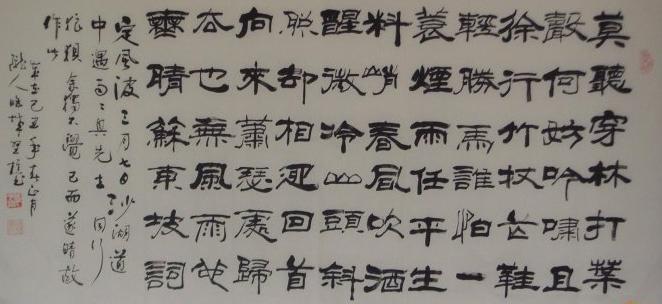 莫聽穿林打葉
聲何妨吟嘯且
徐行竹杖芒鞋
輕勝馬誰怕一
蓑煙雨任平生
料峭春風吹酒
醒微冷山頭斜
照却相迎回首
向來蕭瑟處歸
去也無風雨也
無晴蘇東坡詞
定風波三月七日沙湖道
中遇雨〻具先去同行
狼狽余獨不覺已而遂晴故
作此
歲在己丑年春正月